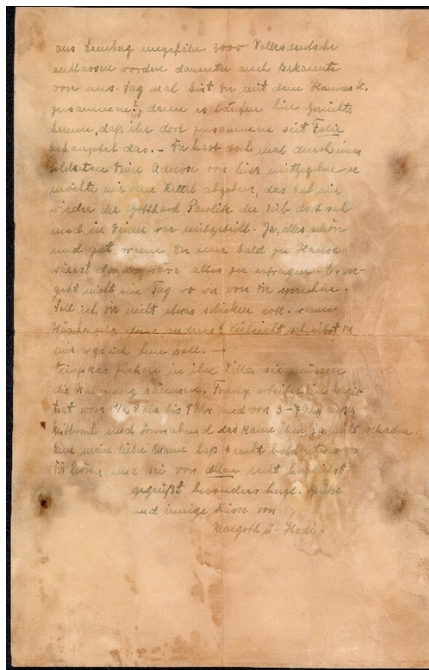 aus Lemberg ungefähr 3000 Volksdeutsche
entlassen worden darunter auch Bekannte
von uns. Sag mal bist Du mit dem Hannes K.
zusammen?, denn es läufen hier Gerüchte
herum, daß ihr dort zusammen seit Felix
das. – Du hast doch mal durch einen
Soldaten Deine Adresse von hier mitgegeben er
möchte mir einen Zettel abgeben, das hat mir
wieder der Gotthard Pawlik der Dich dort sah
und in war mitgeteilt. Ja, alles schön
und gut wenn Du nur bald zu Hause
wärest dann wäre alles zu ertragen. Es ver-
geht nicht ein Tag wo wir von Dir sprechen.
Soll ich Dir nicht etwas schicken
Wäsche oder etwas anderes? Vielleicht schreibst Du
mir was ich tun soll. –
ziehen in ihre Villa sie müssen
die Wohnung räumen. Franz arbeitet im Magis-
trat von 1/2 8 Uhr bis 1 Uhr und von 3–7 Uhr
Mittwoch und Sonnabend das kann ihm gar nicht schaden.
Nun mein lieber laß recht bald etwas von
Dir hören und sei von allen recht herzlichst
gegrüßt besonders herzl. Grüße
und innige Küsse von
Margoth u. Hedi.